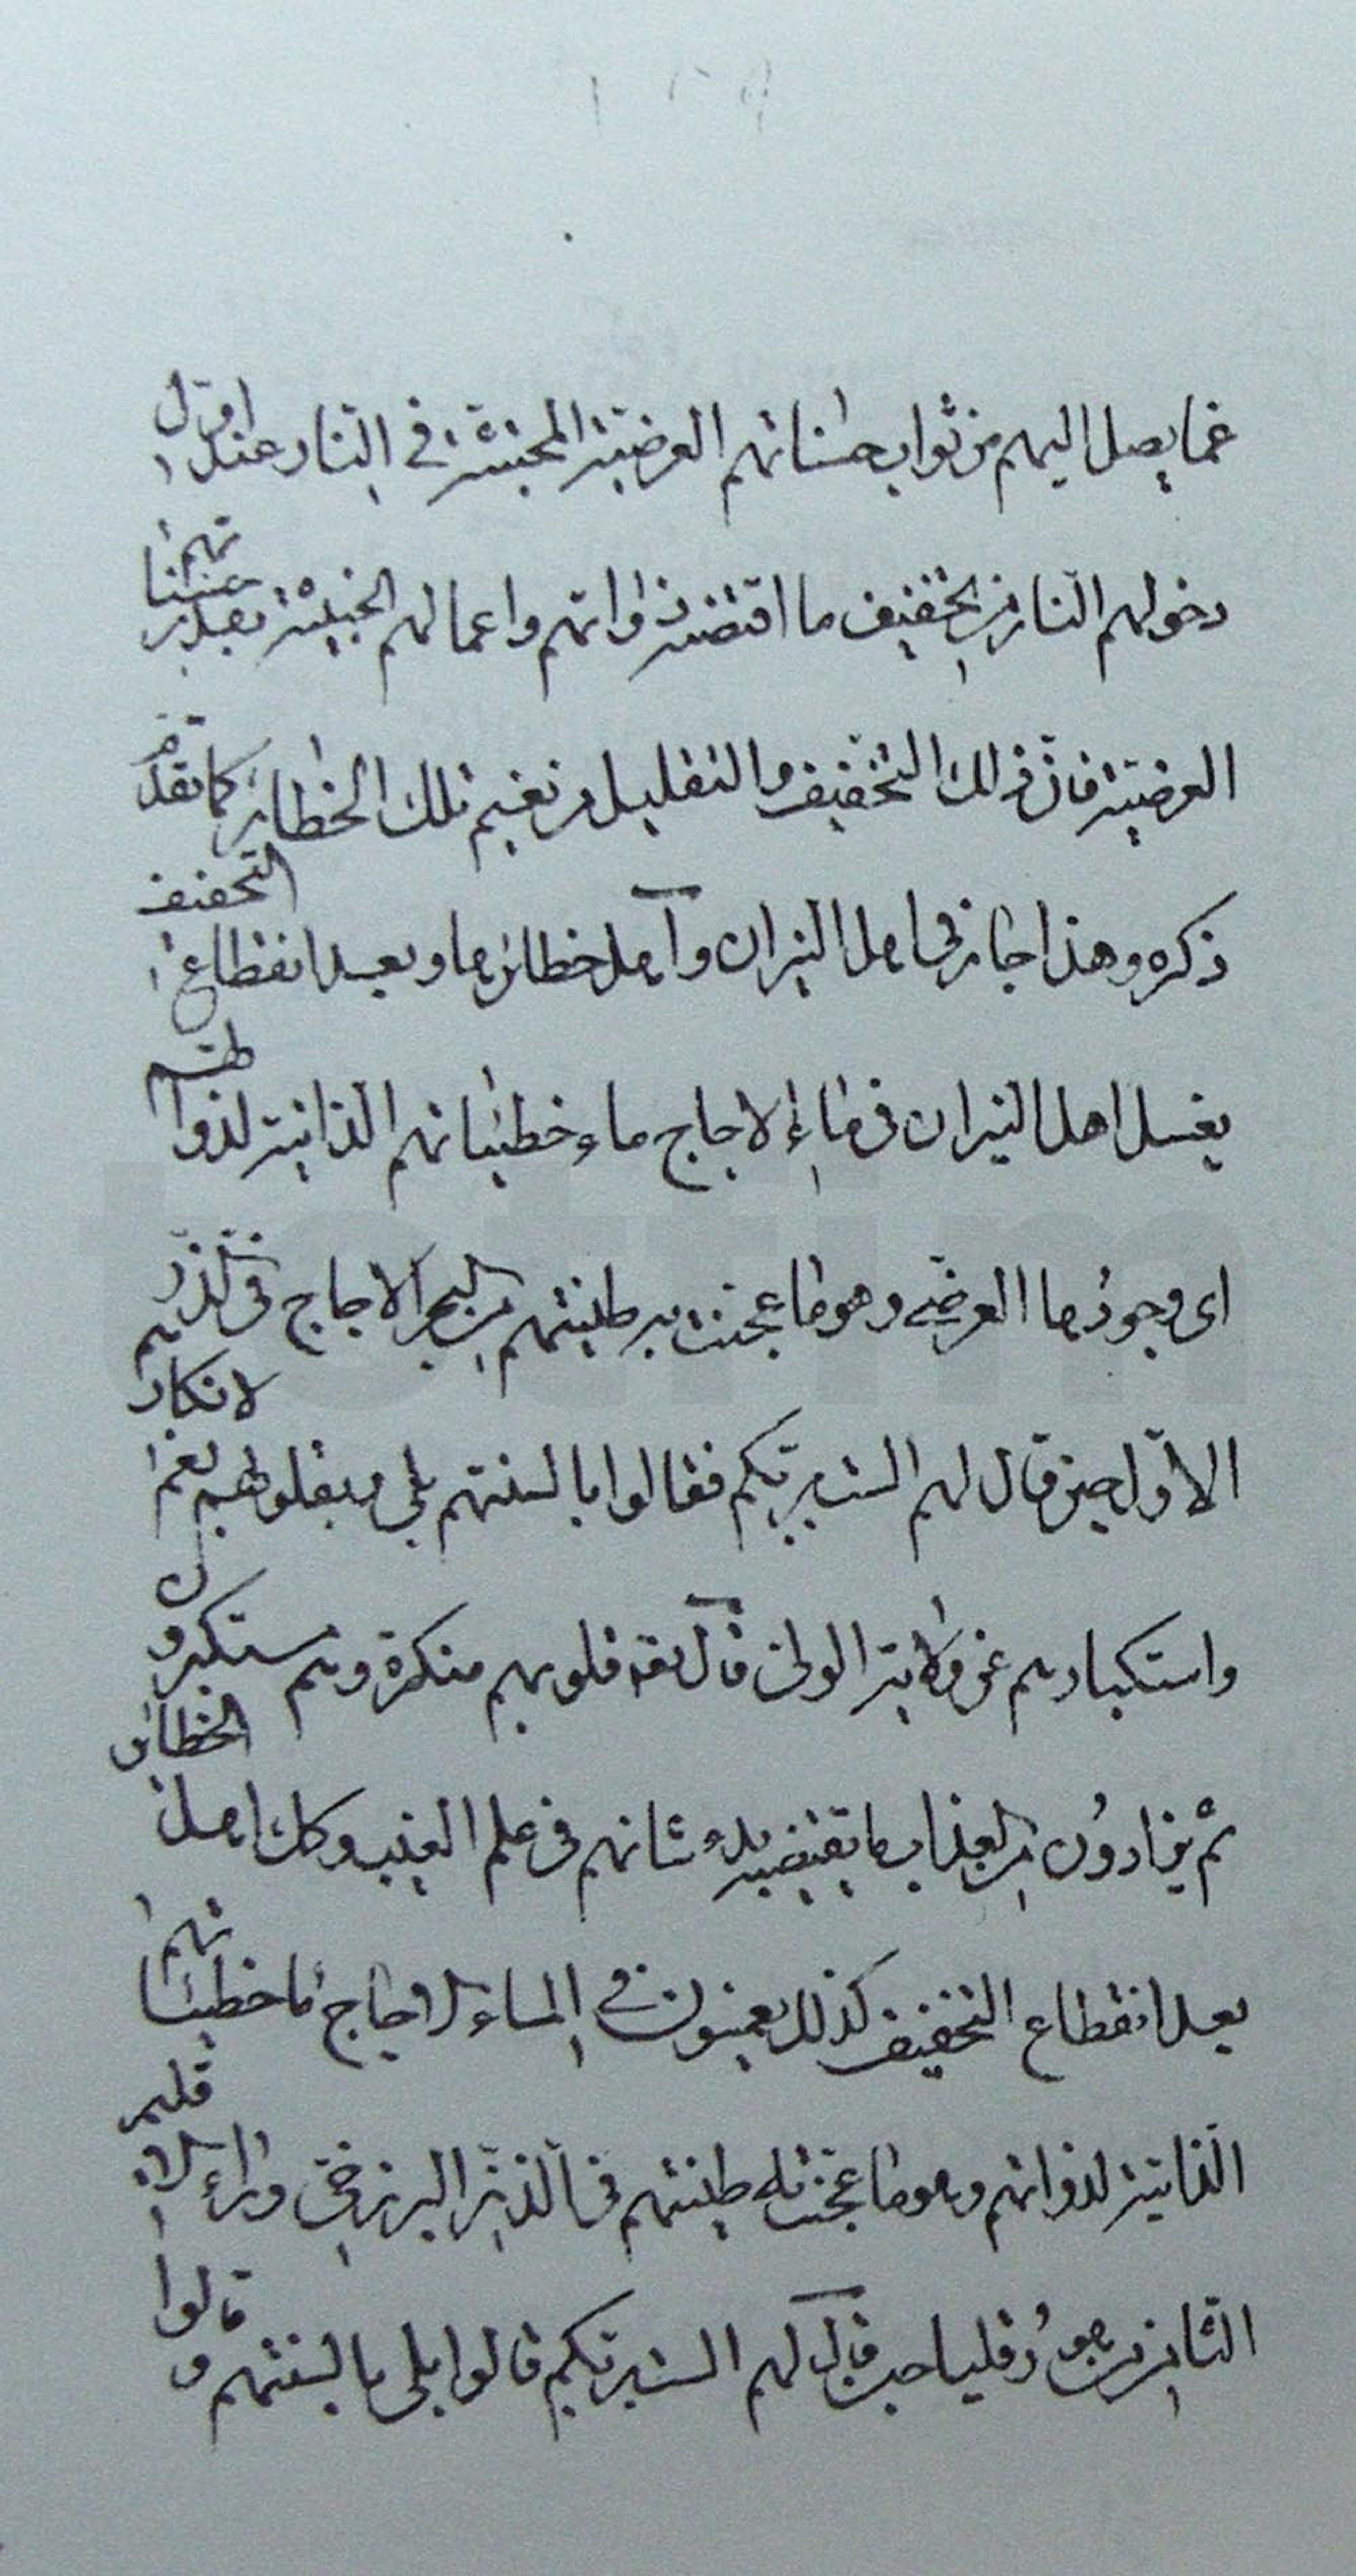 عما يصل اليهم من ثواب حسناتهم العرضية المجتثة في النار عند اول
دخولهم النار من تخفيف ما اقتضته ذواتهم واعمالهم الخبيثة بقدر حسناتهم
العرضية فان ذلك التخفيف والتقليل من نعيم تلك الحظائر كما تقدم
ذكره وهذا جار في اهل النيران وآهل حظائرها وبعد انقطاع التخفيف
يغسل اهل النيران في ماء الاجاج ماء خطيئاتهم الذاتية لذواتهم
اى وجودها العرضي وهو ما عجنت به طينتهم من البحر الاجاج في الذر
الاول حين قال لهم الست بربكم فقالوا بالسنتهم بلى وبقلوبهم نعم لانكارهم
واستكبارهم عن ولاية الولى قال تعه قلوبهم منكرة وهم مستكبرون
ثم يزادون من العذاب ما يقتضيه بدء شانهم في علم الغيب وكك اهل الحظائر
بعد انقطاع التخفيف كذلك يغمسون في الماء الاجاج ماء خطيئاتهم
الذاتية لذواتهم وهو ما عجنت به طينتهم في الذر البرزخي وراء الاقليم
الثامن من هورقليا حين قال لهم الست بربكم قالوا بلى بالسنتهم و قالوا